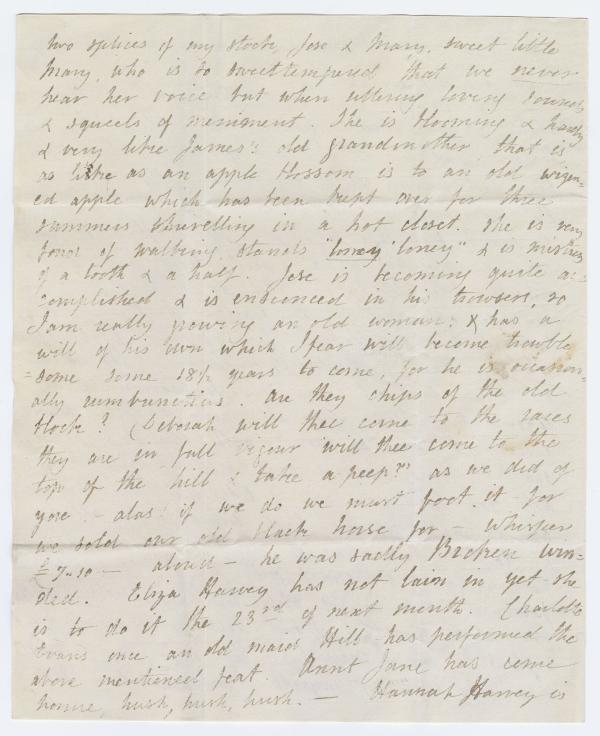 two splices of my stock, Jose & Mary, sweet little
Mary, who is so sweet tempered that we never
hear her voice but when uttering loving sounds
& squeels of meniment. She is blooming & hearty
& very like James's old grandmother that is
as like as an apple blossom is to an old wizen-
ed apple which has been kept over for three
summers shrivelling in a hot closet. She is very
fond of walking, stands "loney loney" & is mistress
of a tooth & a half. Jose is becoming quite ac-
complished & is ensconced in his trowsers, so
I am really growing an old woman; & has a
will of his own which I fear will become trouble
=some some 18½ years to come, for he is occasion-
ally rumbunctius. Are they chips of the old
block? (Deborah will thee come to the races
they are in full vigour will thee come to the
top of the hill & take a peep?" as we did of
yore - alas! if we do we must foot it for
we sold our old black horse for - whisper
£7-10 - aloud - he was sadly Broken win-
ded. Eliza Harvey has not lain in yet she
is to do it the 23rd of next month. Charlotte
Evans once an old maid Hill has performed the
above mentioned feat. Aunt Jane has come
home, hush, hush, hush. - Hannah Harvey is